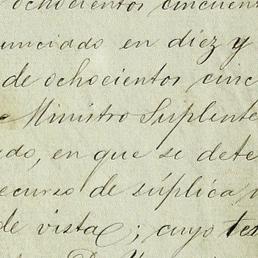 ochocientos cincuen
unciado en diez y
de ochocientos cinc
Ministro Suplente
ado, en que se dete
recurso de súplica
de vista; cuyo ten